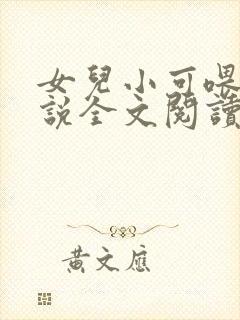 女兒小可喂
說全文閱讀
黃文應